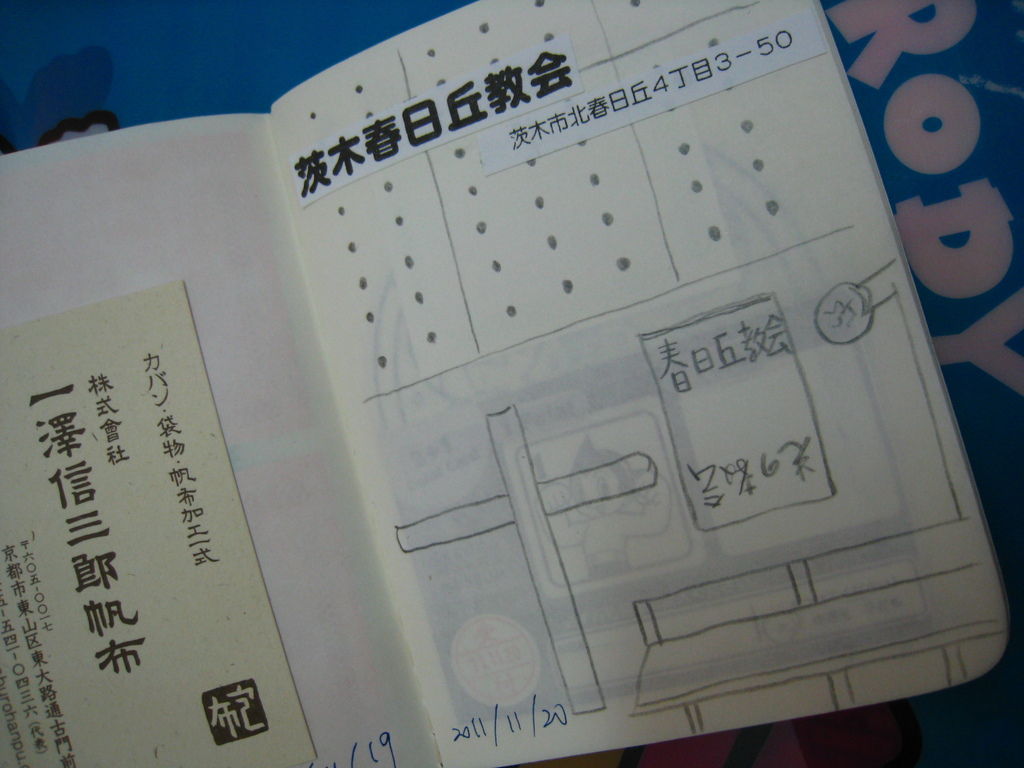 茨木春日丘教会
茨木市北春日丘4丁目3-50
春日丘教会
2011/11/20
カバン・袋物・帆布加工一式
株式會社
一澤信三郎帆布
〒六〇五-〇〇一七
京都市東山区東大路通古門前
/19
ROPY